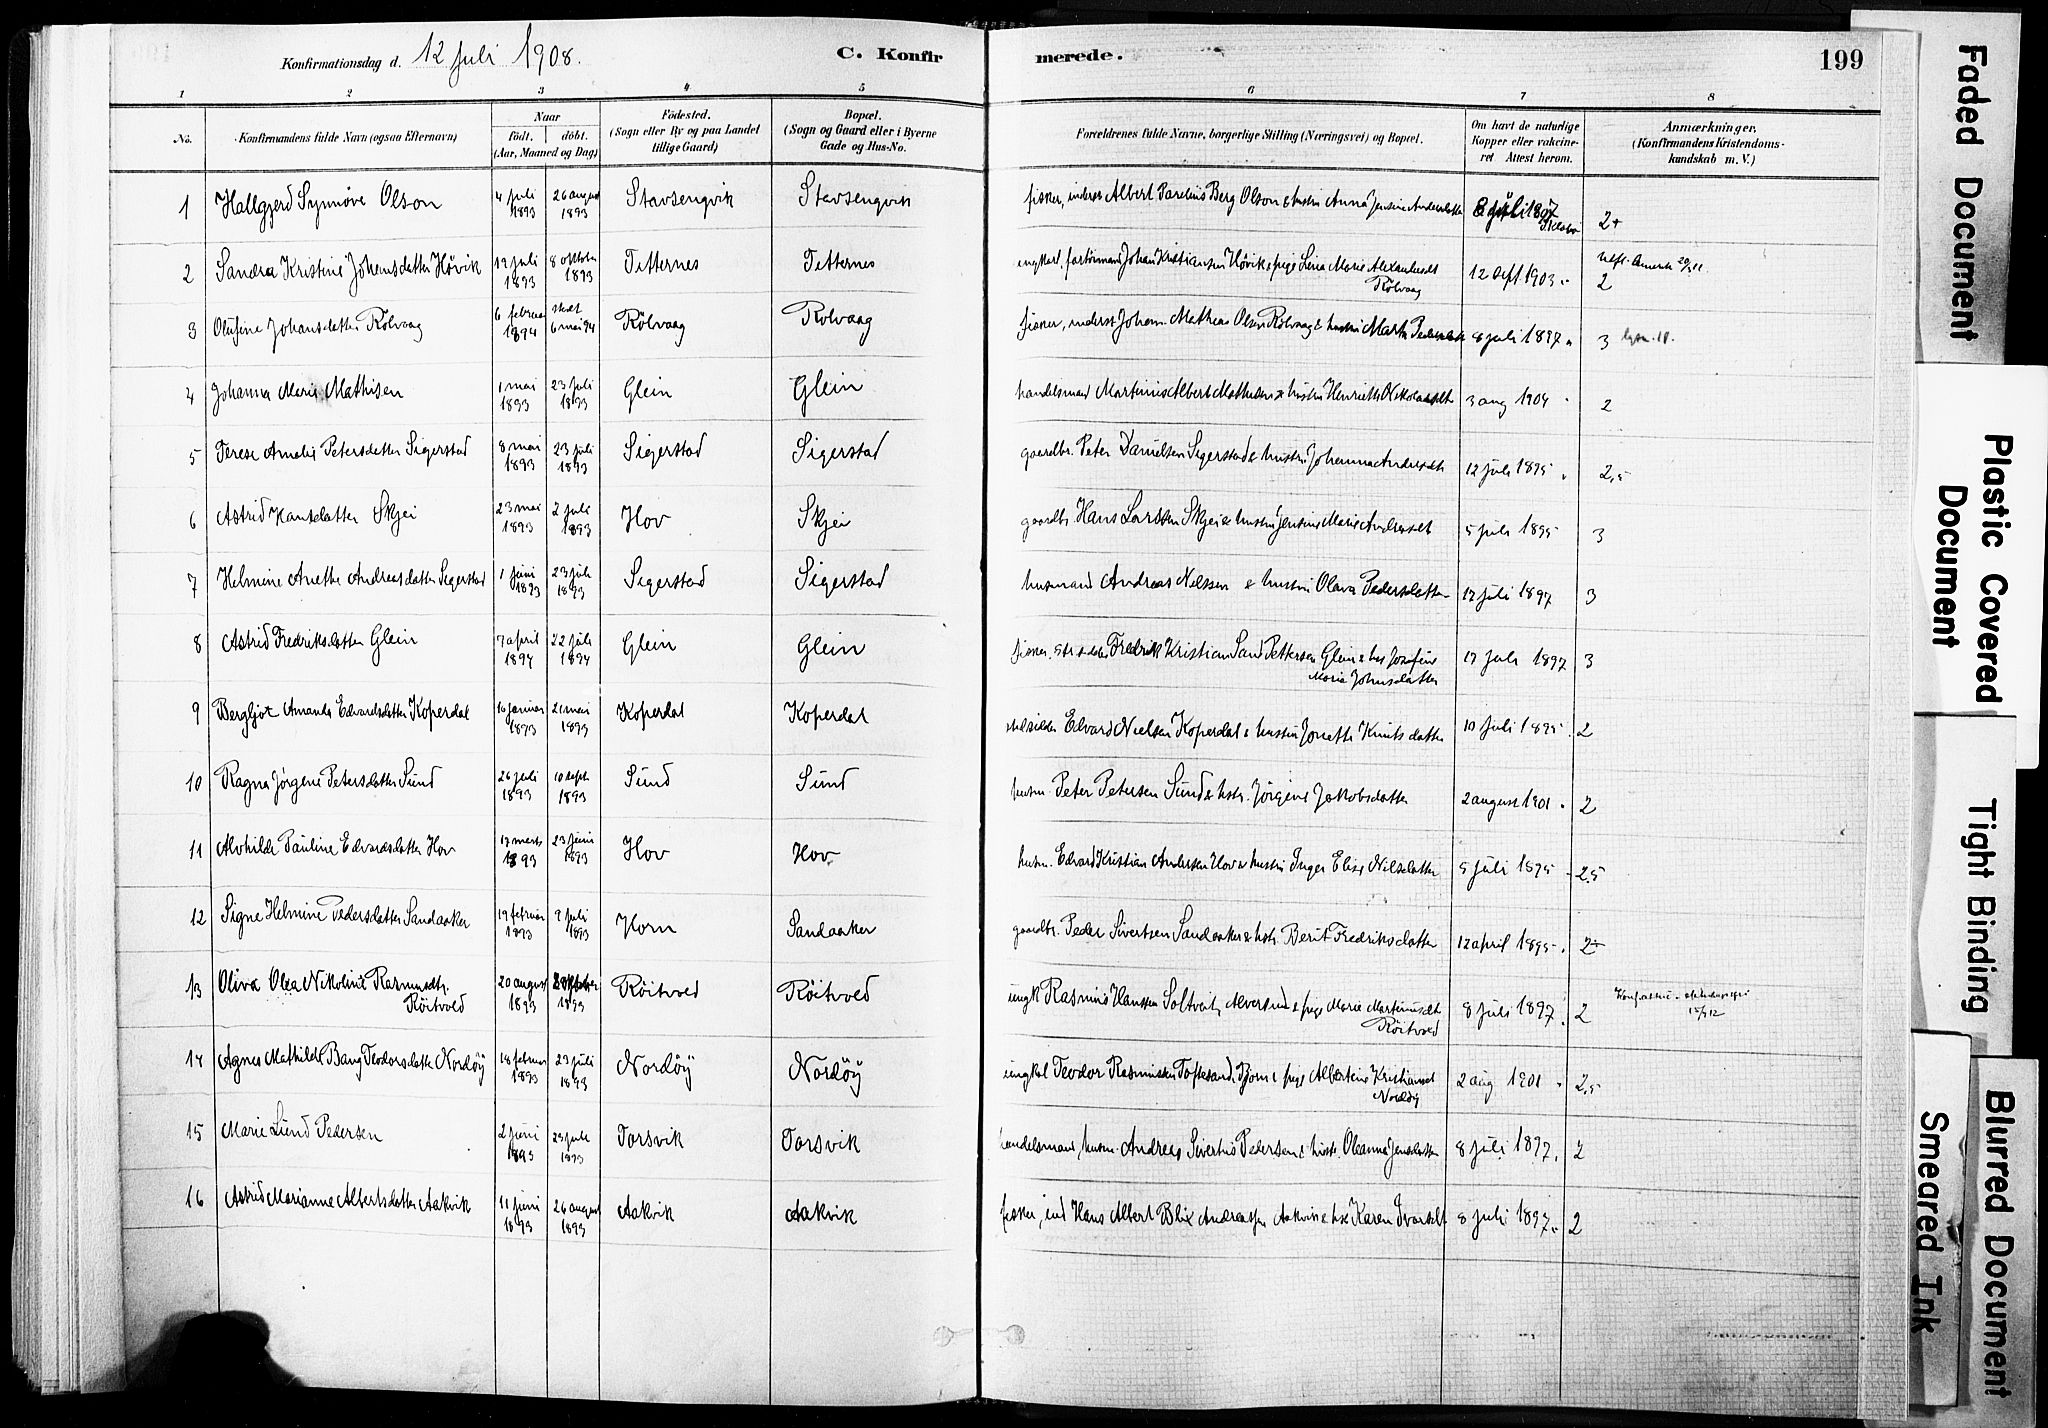 Konfirmationsdag d. 12 Juli 1908.
C. Konfirmerede.
199
1 2 3 4 5 6 7 8
No.
Konfirmandens fulde Navn (ogsaa Efternavn)
Naar
født. døbt.
(Aar, Maaned og Dag)
Fødested.
(Sogn eller By og paa Landet
tillige Gaard)
Bopæl.
(Sogn og Gaard eller i Byerne
Gade og Hus-No.
Forældrenes fulde Navne, borgerlige Stilling (Næringsvei) og Bopæl.
Om havt de naturlige
Kopper eller vakcine-
ret Attest herom.
Anmærkninger.
(Konfirmandens Kristendoms-
kundskab m. V.)
1 Hallgjerd Synnøve Olson 4 juli 1893 26 august 1893 Stavsengvik Stavsengvik fisker, inderst Albert Parelius Berg Olson & hustru Anna Jensine Andersdatter 8 juli 1897 2+
2 Sandra Kristine Johansdatter Hövik 19 juli 1893 8 oktober 1893 Titternes Titternes ungkarl, Johan Kristiansen Hövik & pige Lina Marie Alexandersdt
Rölvaag 12 sept 1903 2
3 Olufine Johansdatter Rölvaag 6 februar 1894 6 mai 94 Rölvaag Rölvaag fisker, inderst Johan Mathias Olsen Rölvaag & hustru Martha Pedersdatter 8 juli 1897 3
4 Johanna Marie Mathisen 1 mai 1893 23 juli 1893 Glein Glein handelsmand Martinus Albert Mathisen & hustru Henriette Nikolaisdt 3 aug 1904 2
5 Terese Amalie Petersdatter Sigerstad 8 mai 1893 23 juli 1893 Sigerstad Sigerstad gaardbr. Peter Danielsen Sigerstad & hustru Johanna Andersdt 12 juli 1895 2,5
6 Astrid Hansdatter Skjei 23 mai 1893 2 juli 1893 Hov Skjei gaardbr. Hans Larssen Skjei & hustru Jensine Marie Andersdt 5 juli 1895 3
7 Helmine Anetha Andreasdatter Sigerstad 1 juni 1893 23 juli 1893 Sigerstad Sigerstad husmand Andreas Nilssen & hustru Olava Pedersdatter 17 juli 1897 3
8 Astrid Fredriksdatter Glein 17 april 1894 22 juli 1894 Glein Glein fisker, Fredrik Kristian Sand Pettersen Glein & hus Josefine
Marie Johnsdatter 17 juli 1897 3
9 Bergljot Amanda Edvardsdatter Koperdal 10 januar 1893 21 mai 1893 Koperdal Koperdal Edvard Nielsen Koperdal & hustru Jonetta Knutsdatter 10 juli 1895 2
10 Ragna Jörgine Petersdatter Sund 26 juli 1893 10 sept 1893 Sund Sund husm. Peter Petersen Sund & hstr. Jörgine Jakobsdatter 2 august 1901 2
11 Alvhilde Pauline Edvardsdatter Hov 17 marts 1893 23 juni 1893 Hov Hov husm. Edvard Kristian Andersen Hov & hustru Inger Elise Nilsdatter 5 juli 1895 2,5
12 Signe Helmine Pedersdatter Sandaaker 19 februar 1893 9 juli 1893 Horn Sandaaker gaardbr. Peder Sivertsen Sandaaker & hstr. Berit Fredriksdatter 12 april 1895 2+
13 Oliva Olea Nikoline Rasmusdtr.
Röitvold 20 august 1893 8 oktober 1893 Röitvold Röitvold ungk Rasmus Hanssen Soltveit, Alversund & pige Marie Martinusdt
Röitvold 8 juli 1897 2
14 Agnes Mathilde Bang Teodorsdatter Nordöy 18 februar 1893 23 juli 1893 Nordöy Nordöy ungkl Teodor Rasmussen Toftesand, Tjom & pige Albertine Kristiansd
Nordöy 2 aug 1901 2,5
15 Marie Lund Pedersen 2 juni 1893 23 juli 1893 Torsvik Torsvik handelsmand, husm. Andreas Sivertius Pedersen & hustr. Oleanna Jensdatter 8 juli 1897 2
16 Astrid Marianne Albertsdatter Aakvik 11 juni 1893 26 august 1893 Aakvik Aakvik fisker, ind Hans Albert Blix Andreassen Aakvik & hu Karen Ivarsdt 8 juli 1897 2
Faded Document
Plastic Covered
Document
Tight Binding
Blurred Document
Smeared Ink